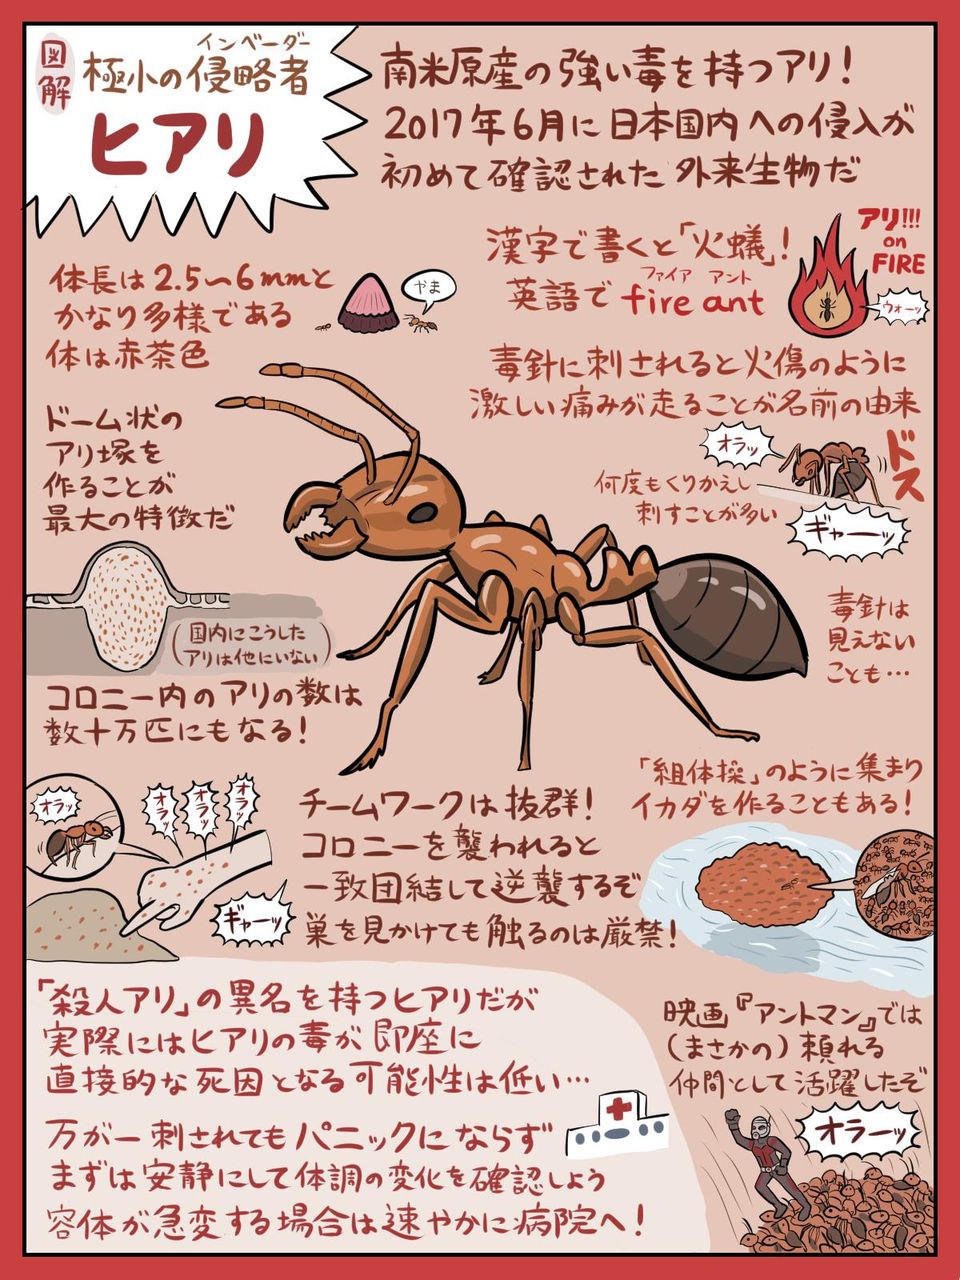 図解
インベーダー
極小の侵略者
ヒアリ
南米原産の強い毒を持つアリ!
2017年6月に日本国内への侵入が
初めて確認された外来生物だ
漢字で書くと「火蟻」!
ファイア アント
英語で fire ant
アリ!!!
on
FIRE
ウオーッ
体長は2.5〜6mmと
かなり多様である
体は赤茶色
やま
毒針に刺されると火傷のように
激しい痛みが走ることが名前の由来
オラッ
ドス
何度もくりかえし
刺すことが多い
ギャーッ
ドーム状の
アリ塚を
作ることが
最大の特徴だ
(国内にこうした
アリは他にいない)
毒針は
見えない
ことも…
コロニー内のアリの数は
数十万匹にもなる!
オラッ
オラッ
オラッ
オラッ
ギャーッ
チームワークは抜群!
コロニーを襲われると
一致団結して逆襲するぞ
巣を見かけても触るのは厳禁!
「組体操」のように集まり
イカダを作ることもある!
「殺人アリ」の異名を持つヒアリだが
実際にはヒアリの毒が即座に
直接的な死因となる可能性は低い…
万が一刺されてもパニックにならず
まずは安静にして体調の変化を確認しよう
容体が急変する場合は速やかに病院へ!
映画『アントマン』では
(まさかの)頼れる
仲間として活躍したぞ
オラーッ